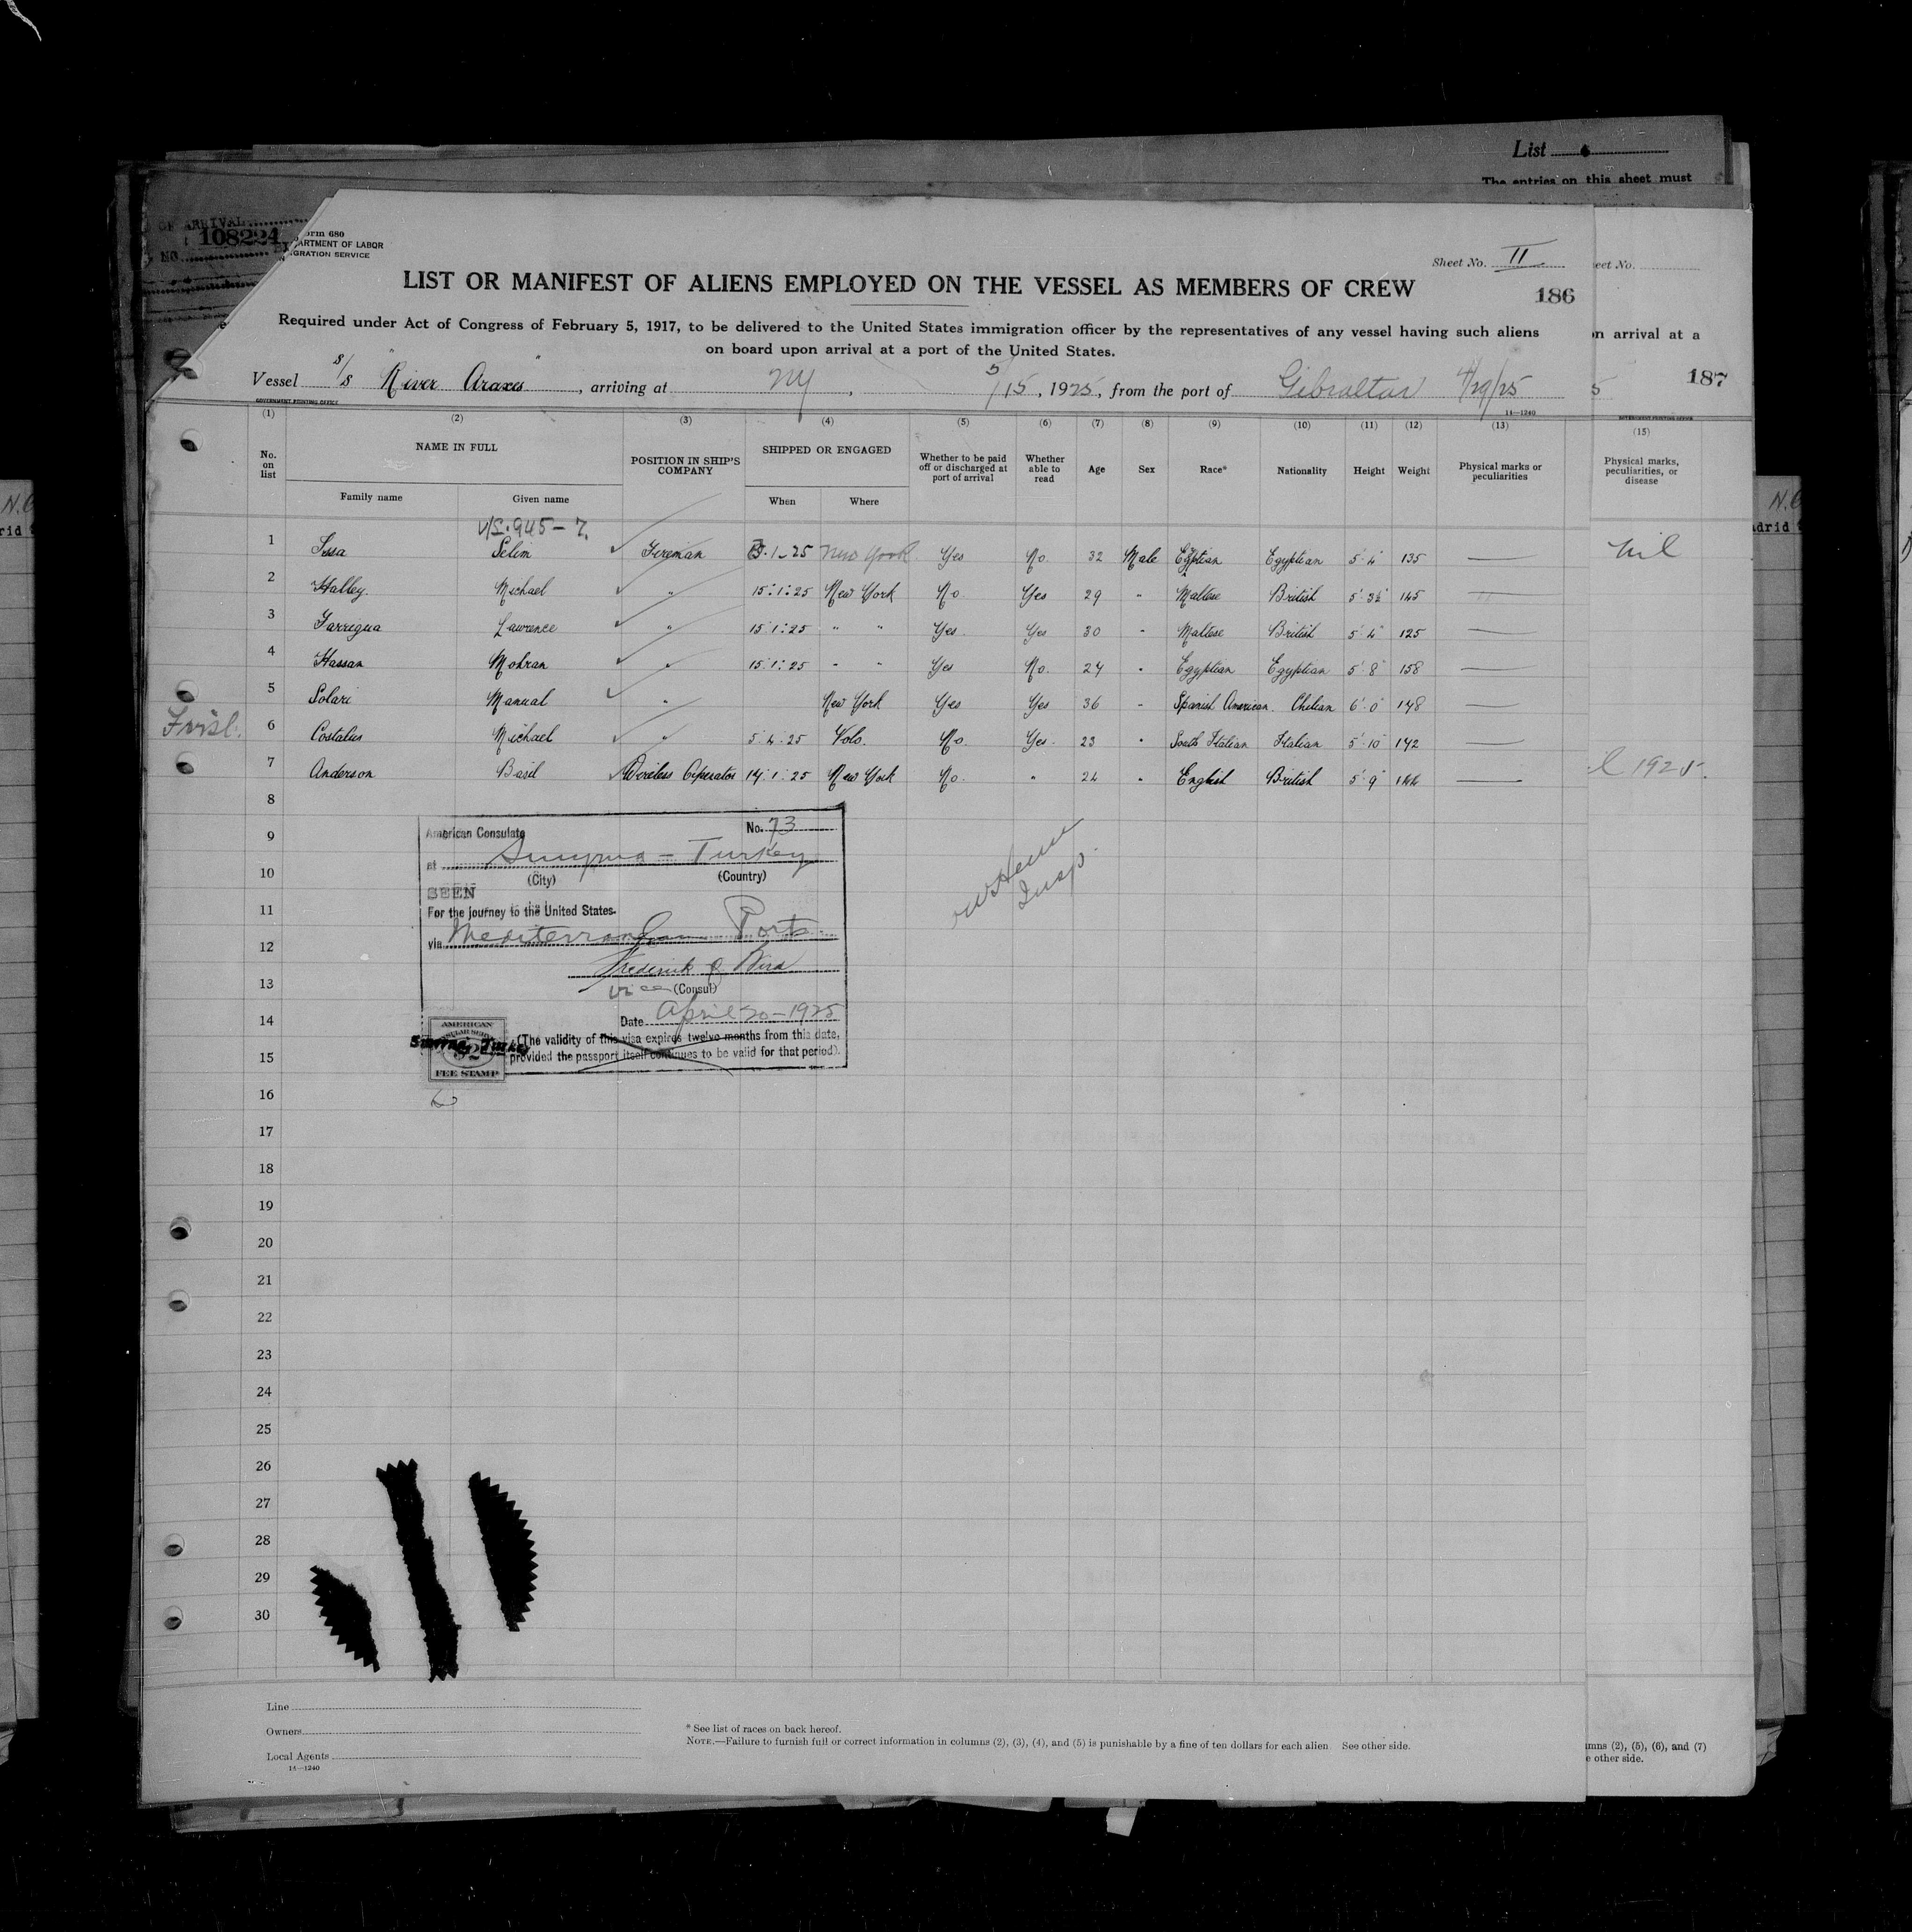 List
The entries on this sheet must
OF ARRIVAL
NO. 108224
orm 680
ARTMENT OF LABOR
GRATION SERVICE
Sheet No. II
eet No.
LIST OR MANIFEST OF ALIENS EMPLOYED ON THE VESSEL AS MEMBERS OF CREW
186
Required under Act of Congress of February 5, 1917, to be delivered to the United States immigration officer by the representatives of any vessel having such aliens
on board upon arrival at a port of the United States.
on arrival at a
Vessel S/S "River Araxes", arriving at NY, 5/15, 1925, from the port of Gibraltar 4/29/25
5
187
GOVERNMENT PRINTING OFFICE
14—1240
(1) (2) (3) (4) (5) (6) (7) (8) (9) (10) (11) (12) (13) (15)
No. on list NAME IN FULL POSITION IN SHIP'S COMPANY SHIPPED OR ENGAGED Whether to be paid off or discharged at port of arrival Whether able to read Age Sex Race* Nationality Height Weight Physical marks or peculiarities Physical marks, peculiarities, or disease
Family name Given name When Where
V/S. 945-7.
1 Issa Selim Fireman 1-25 New York Yes No. 32 Male Egyptian Egyptian 5' 4" 135 — Nil
2 Halley. Michael " 15:1:25 New York No Yes 29 " Maltese British 5' 3½ 145 —
3 Farrugua Lawrence " 15:1:25 " " Yes Yes 30 " Maltese British 5' 4" 125 —
4 Hassan Mohran " 15:1:25 " " Yes No. 24 " Egyptian Egyptian 5' 8" 158 —
5 Solari Manual " New York Yes Yes 36 " Spanish American. Chilian 6' 0" 148 —
6 Costalus Michael " 5:4:25 Volo. No. Yes. 23 " South Italian Italian 5' 10" 142 —
7 Anderson Basil Wireless Operator 14:1:25 New York No. " 24 " English British 5' 9" 144 —
l 1925.
8
9
10
11
12
13
14
15
16
17
18
19
20
21
22
23
24
25
26
27
28
29
30
American Consulate No. 73
at Smyrna - Turkey
(City) (Country)
SEEN
For the journey to the United States.
via Mediterranean Ports
Frederick O Bird
Vice (Consul)
Date April 20-1925
(The validity of this visa expires twelve months from this date,
provided the passport itself continues to be valid for that period).
AMERICAN
Smyrna, Turkey
FEE STAMP
Insp.
Line
Owners
Local Agents
14—1240
* See list of races on back hereof.
NOTE.—Failure to furnish full or correct information in columns (2), (3), (4), and (5) is punishable by a fine of ten dollars for each alien. See other side.
umns (2), (5), (6), and (7)
e other side.